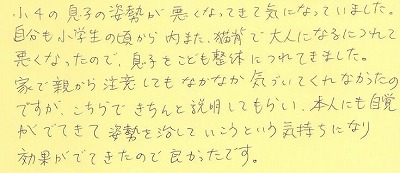 小4の息子の姿勢が悪くなってきて気になっていました。
自分も小学生の頃から内また、猫背で大人になるにつれて
悪くなったので、息子をこども整体につれてきました。
家で親から注意してもなかなか気づいてくれなかったの
ですが、こちらできちんと説明してもらい、本人にも自覚
がでてきて姿勢を治していこうという気持ちになり
効果がでてきたので良かったです。